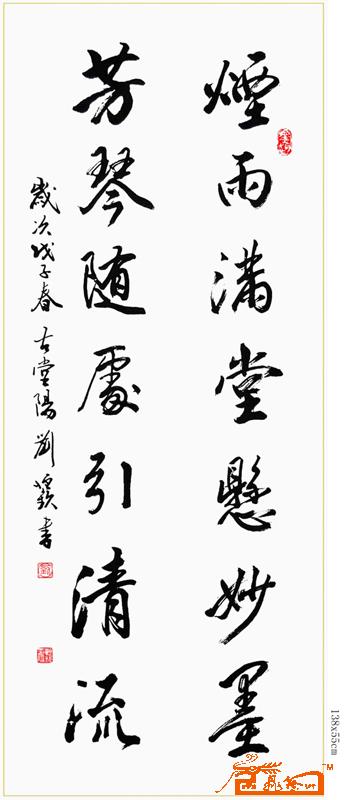 煙雨滿堂懸妙墨
芳琴随處引清流
歲次戊子春古堂陽劉書
138x55cm
TM